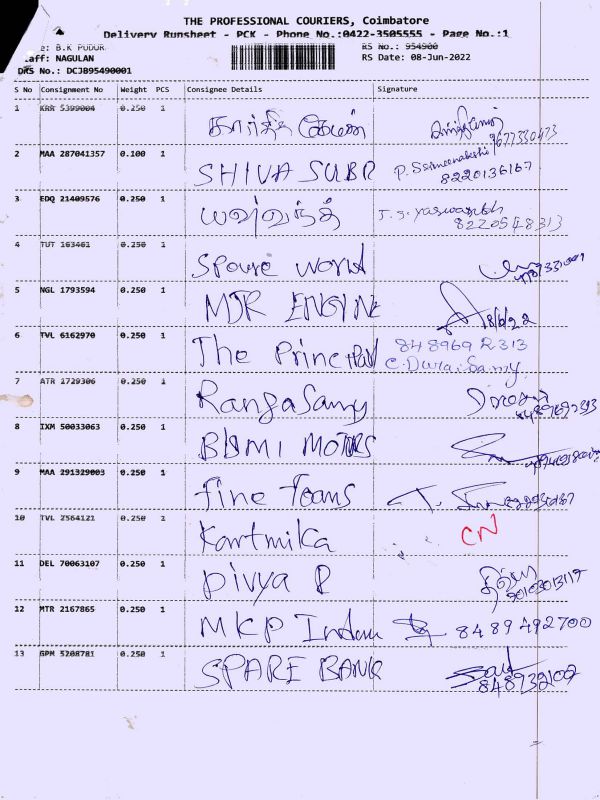 THE PROFESSIONAL COURIERS, Coimbatore
Delivery Runsheet - PCK - Phone No.:0422-3505555 - Page No.:1
: B.K PUDUR
RS No.: 954900
aff: NAGULAN
RS Date: 08-Jun-2022
DRS No.: DCJB95490001
S No Consignment No Weight PCS Consignee Details Signature
1 KRR 5399004 0.250 1 கார்த்தி
9677330473
2 MAA 287041357 0.100 1 SHIVA SUBR P.
8220136167
3 EDQ 21409576 0.250 1 யஷ்வந்த் T.S. Yaswanth
8220548313
4 TUT 163461 0.250 1 Spare world
5 NGL 1793594 0.250 1 MJR ENGINE
18/6/22
6 TVL 6162970 0.250 1 The Principal 84896 92313
C. Duraisamy
7 ATR 1729306 0.250 1 RangaSamy
8 IXM 50033063 0.250 1 BHMI MOTORS
9 MAA 291329003 0.250 1 fine Teans
10 TVL 2564121 0.250 1 Karthika CN
11 DEL 70063107 0.250 1 Divya P
12 MTR 2167865 0.250 1 MKP 8489492700
13 GPM 5208781 0.250 1 SPARE BANK